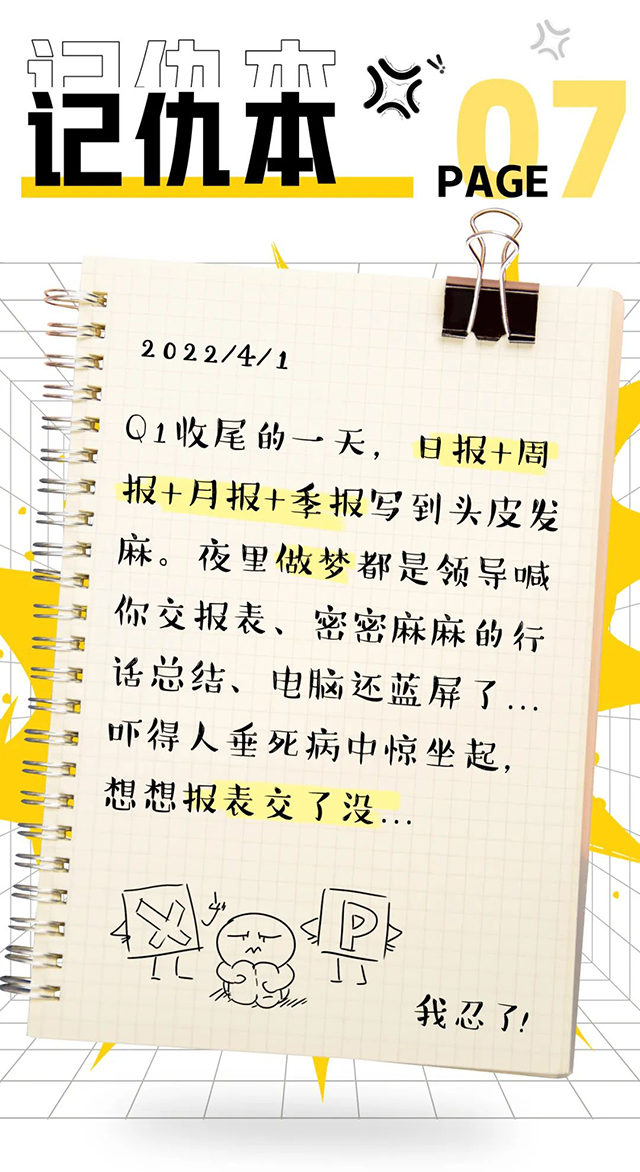 记仇本
记仇本
07
PAGE
2022/4/1
Q1收尾的一天，日报+周
报+月报+季报写到头皮发
麻。夜里做梦都是领导喊
你交报表、密密麻麻的行
话总结、电脑还蓝屏了...
吓得人垂死病中惊坐起，
想想报表交了没...
X
P
我忍了!